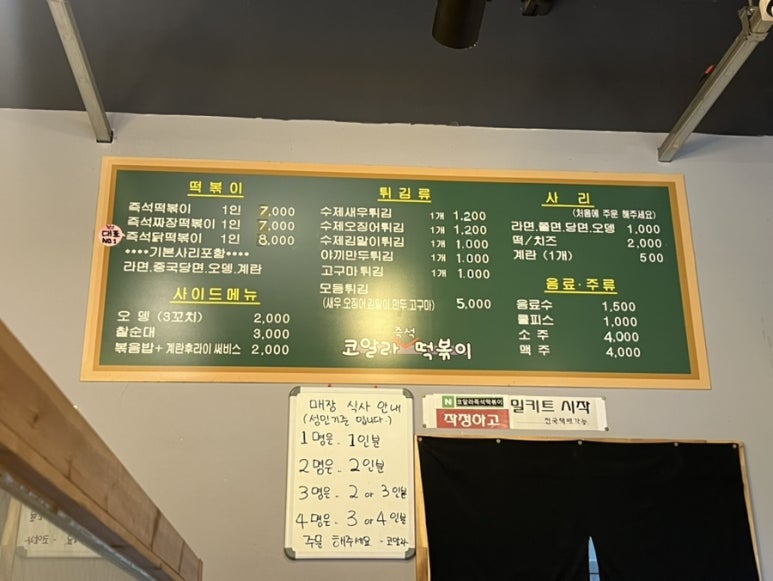 떡볶이
즉석떡볶이 1인 7,000
즉석짜장떡볶이 1인 7,000
대표
NO.1
즉석닭떡볶이 1인 8,000
••••기본사리포함••••
라면.중국당면.오뎅.계란
사이드메뉴
오 뎅 (3꼬치) 2,000
찰순대 3,000
볶음밥+계란후라이 써비스 2,000
튀김류
수제새우튀김 1개 1,200
수제오징어튀김 1개 1,200
수제김말이튀김 1개 1,000
야끼만두튀김 1개 1,000
고구마튀김 1개 1,000
모듬튀김
(새우.오징어.김말이.만두.고구마) 5,000
즉석
코알라 떡볶이
사 리
(처음에 주문 해주세요)
라면.쫄면.당면.오뎅 1,000
떡/치즈 2,000
계란 (1개) 500
음료·주류
음료수 1,500
쿨피스 1,000
소 주 4,000
맥 주 4,000
매장 식사 안내
(성인기준 입니다.)
1명은.. 1인분
2명은.. 2인분
3명은.. 2 or 3인분
4명은.. 3 or 4인분
주문 해주세요 -코알라
N 코알라즉석떡볶이
작정하고
밀키트 시작
전국택배가능